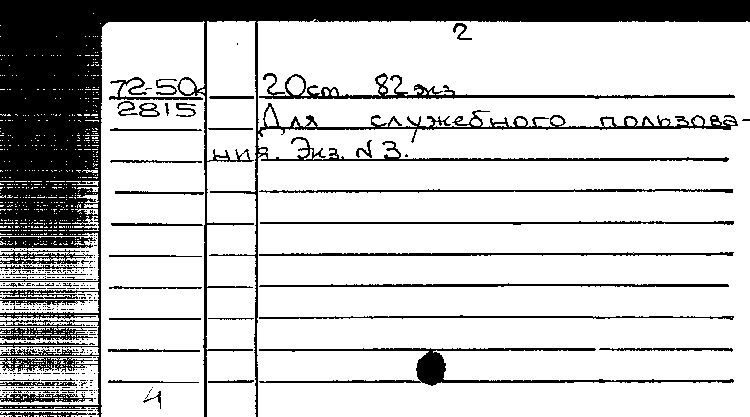 2
72-50к 20см. 82 экз
2815
Для служебного пользова-
ния. Экз. N 3.
4